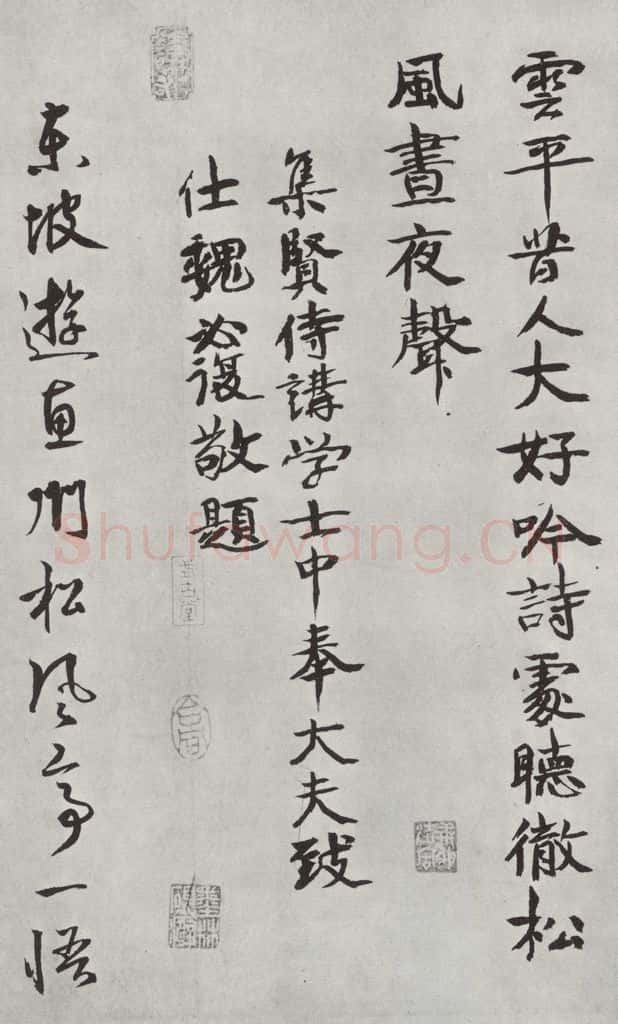 雲平昔人大好吟詩處聽徹松
風晝夜聲
集賢侍講学士中奉大夫致
仕魏必復敬題
東坡遊惠州松風亭一悟
shufawang.CN